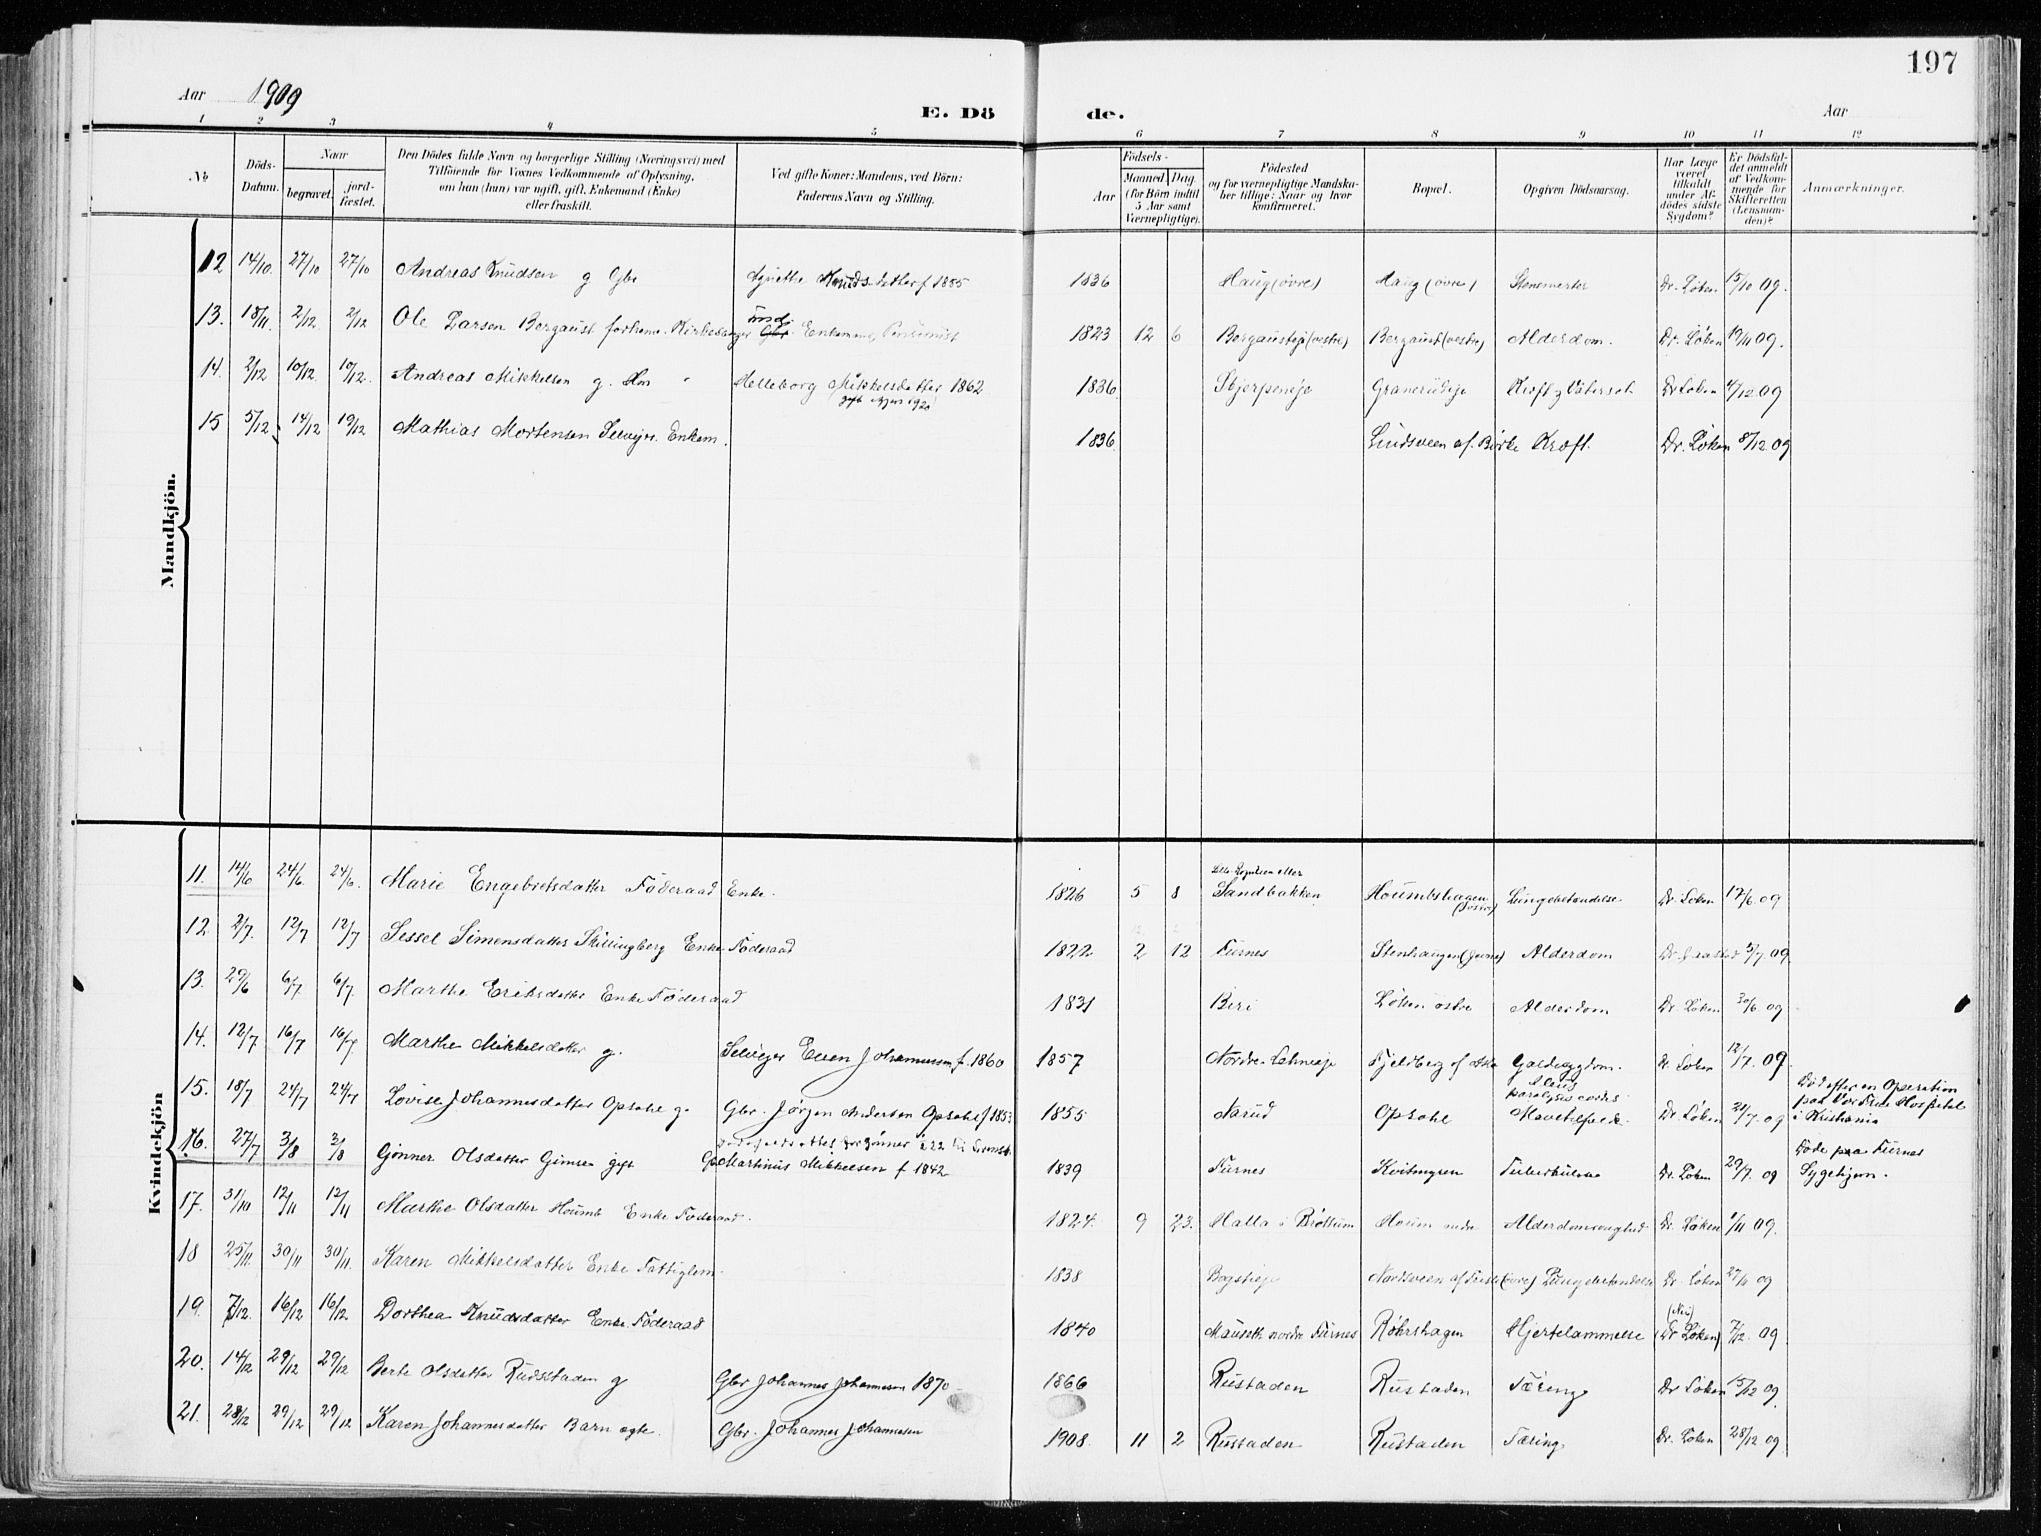 197
Aar 1909
E. Dö de.
Aar
1 2 3 4 5 6 7 8 9 10 11 12
No
Döds-Datum.
Naar
begravet.
jord-fæstet.
Den Dödes fulde Navn og borgerlige Stilling (Næringsvei) med
Tilföiende for Voxnes Vedkommende af Oplysning,
om han (hun) var ugift, gift, Enkemand (Enke)
eller fraskilt.
Ved gifte Koner: Mandens, ved Börn:
Faderens Navn og Stilling.
Födsels-
Aar
Maaned Dag
(for Börn indtil
5 Aar samt
Værnepligtige).
Födested
og for værnepligtige Mandska-
ber tillige: Naar og hvor
konfirmeret.
Bopæl.
Opgiven Dödsaarsag.
Har Læge
været
tilkaldt
under Af-
dödes sidste
Sygdom?
Er Dödsfal-
det anmeldt
af Vedkom-
mende for
Skifteretten
(Lensman-
den)?
Anmærkninger.
Mandkjön.
12 14/10 27/10 27/10 Andreas Knudsen g Gbr Agnethe Knudsdatter f 1855 1836 Haug (øvre) Haug (øvre) Dr. Løken 15/10 09.
13. 18/11. 2/12 2/12 Ole Larsen Bergaust forhenv. Kirkesanger Enkemand 1823 12 6 Bergaust (vestre) Alderdom. Dr. Løken 19/11 09.
14. 2/12 10/12. 10/12. Andreas Mikkelsen g. Helleborg Mikkelsdatter 1862 1836. Kræft Dr Løken 4/12 09
15 5/12 14/12 19/12 Mathias Mortensen Selvejer. Enkem. 1836. Lindsveen af. Birke Kræft. Dr. Løken 8/12 09
Kvindekjön
11. 14/6 24/6. 24/6. Marie Engebretsdatter Föderaad Enke. 1826 5 8 Sandbakken Houmbshagen Lungebetændelse Dr. Løken 17/6 09
12. 2/7. 12/7 12/7 Sessel Simensdatter Skillingberg Enke Föderaad 1822 2 12 Furnes Stenhaugen Alderdom 5/7 09
13. 29/6 6/7. 6/7. Marthe Eriksdatter Enke Föderaad 1831 Beri Løken östre Alderdom Dr. Løken 30/6 09
14. 12/7 16/7 16/7 Marthe Mikkelsdatter g. Selvejer Even Johannessen f. 1860 1857 Fjeldberg af Dr. Løken 12/7. 09
15. 18/7 24/7 24/7 Lovise Johannesdatter Opsahl g. Gbr. Jørgen Andersen Opsahl f 1853 1855 Narud Opsahl paralysis cordis Dr. Løken 21/7. 09 Död efter en Operation
paa Vor Frue Hospital
i Kristiania
16. 27/7 3/8 3/8 Gjönner Olsdatter Gimsen gift Martinus Mikkelsen f 1842 1839 Furnes Kvitengren Tuberkulose Dr. Løken 29/7. 09 Döde paa Furnes
Sygehjem.
17. 31/10 12/11 12/11 Marthe Olsdatter Houmb Enke Föderaad. 1824. 9 23. Halla i Brøttum Houm Alderdomssvaghed Dr. Løken 1/11 09.
18 25/11. 30/11 30/11. Karen Mikkelsdatter Enke Fattiglem. 1838 Nordsveen af (øvre) Lungebetændelse Dr. Løken 27/11 09
19. 7/12. 16/12 16/12 Dorthea Knudsdatter Enke. Föderaad 1840 nordre Furnes Röhrshagen Hjertelammelse (Nei) (Dr Løken) 7/12. 09
20. 14/12 29/12 29/12 Berte Olsdatter Rudsstaden g Gbr Johannes Johannesen 1870 1866 Rustaden Rustaden Tæring Dr Løken 15/12 09.
21. 28/12 29/12 29/12 Karen Johannesdatter Barn ægte. Gbr. Johannes Johannesen 1908. 11 2 Rustaden Rustaden Tæring. Dr. Løken 28/12 09